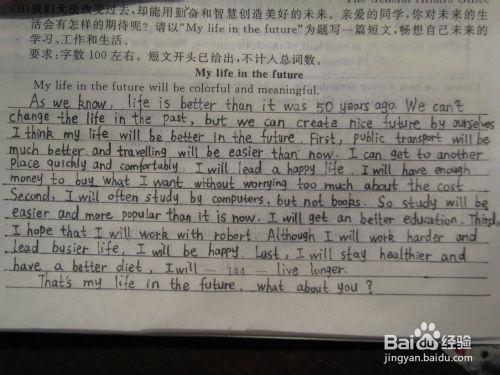 The General Affairs Office
(B)我们无法改变过去,却能用勤奋和智慧创造美好的未来。亲爱的同学,你对未来的生
活会有怎样的期待呢?请以“My life in the future”为题写一篇短文,畅想自己未来的
学习、工作和生活。
要求:字数100左右。短文开头已给出,不计入总词数。
My life in the future
My life in the future will be colorful and meaningful.
As we know, life is better than it was 50 years ago. We can't
change the life in the past, but we can create nice future by ourselves
I think my life will be better in the future. First, public transport will be
much better and travelling will be easier than now. I can get to another
place quickly and comfortably. I will lead a happy life. I will have enough
money to buy what I want without worrying too much about the cost.
Second, I will often study by computers, but not books. So study will be
easier and more popular than it is now. I will get an better education. Third,
I hope that I will work with robort. Although I will work harder and
lead busier life, I will be happy. Last, I will stay healthier and
have a better diet, I will — 144 — live longer.
That's my life in the future, what about you?
Baidu经验
jingyan.baidu.com